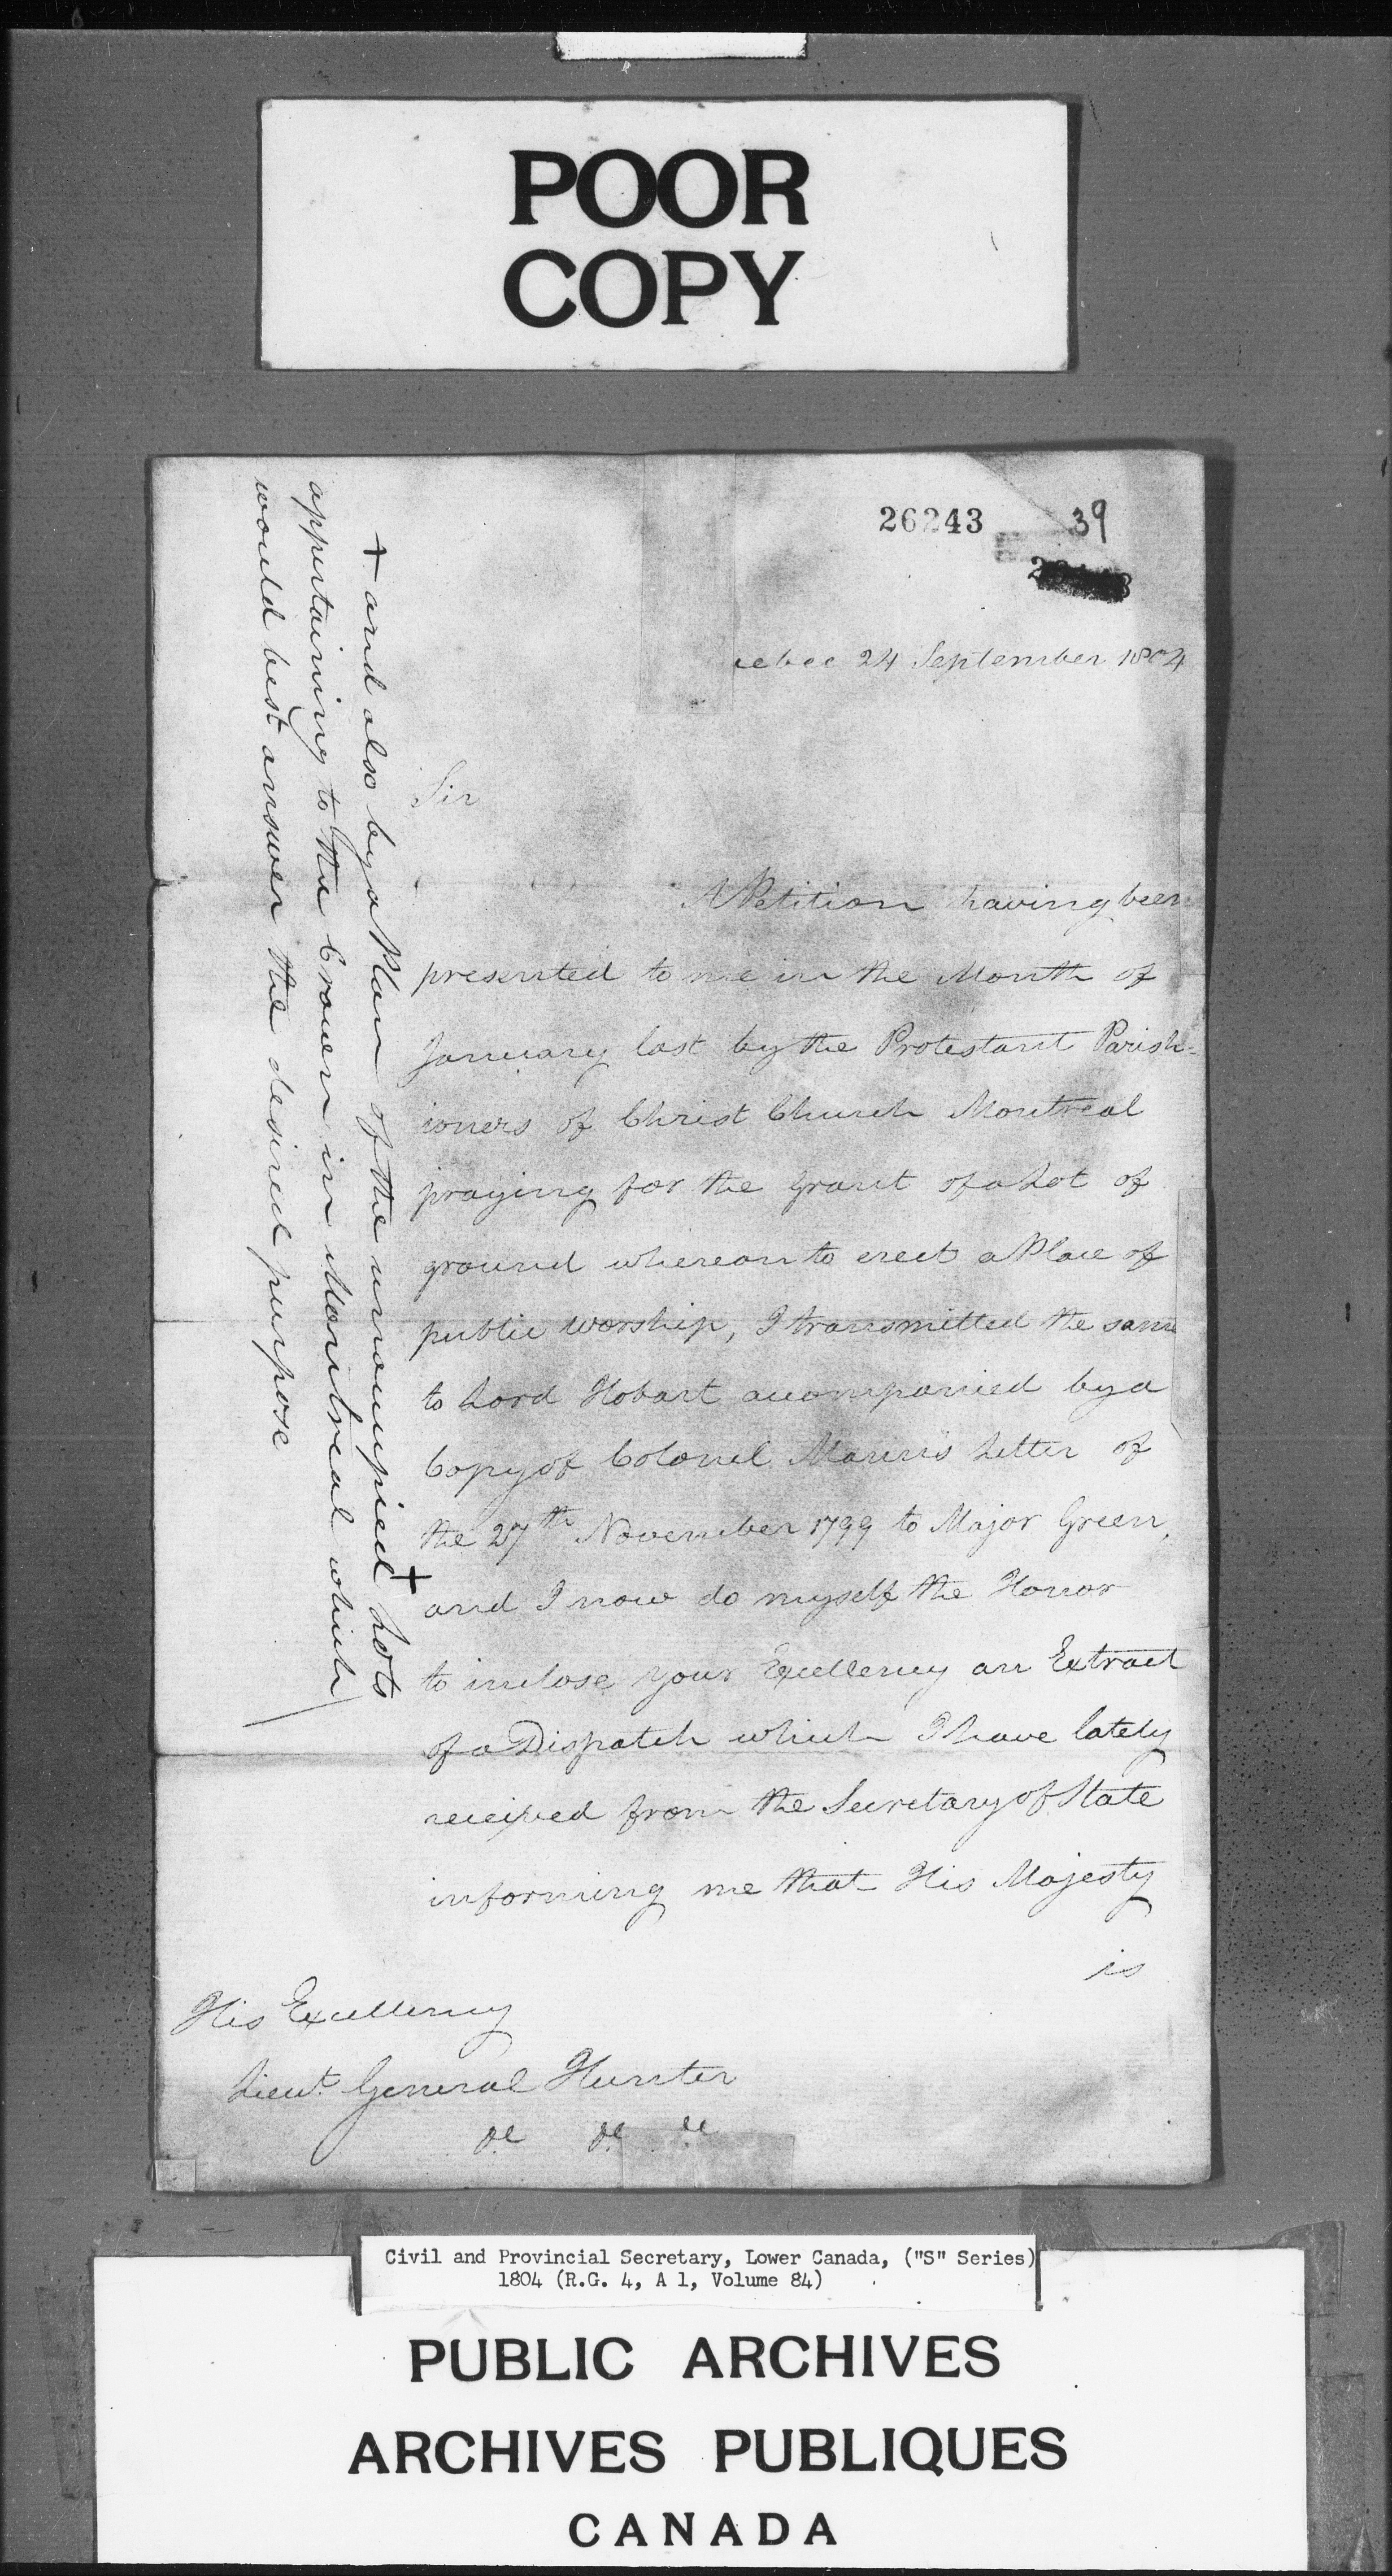 POOR
COPY
26243 39
uebec 24 September 1804
Sir
A Petition having been
presented to me in the Month of
January last by the Protestant Parish-
ioners of Christ Church Montreal
praying for the Grant of a Lot of
ground whereon to erect a Place of
public worship, I transmitted the same
to Lord Hobart accompanied by a
Copy of Colonel Mann's Letter of
the 27th November 1799 to Major Green,
+
and I now do myself the Honor
to inclose your Excellency an Extract
of a Dispatch which I have lately
received from the Secretary of State
informing me that His Majesty
is
His Excellency
Lieut. General Hunter
&c &c &c
+ and also by a Plan of the unoccupied Lots
appertaining to the Crown in Montreal which
would best answer the desired purpose
Civil and Provincial Secretary, Lower Canada, ("S" Series)
1804 (R.G. 4, A 1, Volume 84)
PUBLIC ARCHIVES
ARCHIVES PUBLIQUES
CANADA